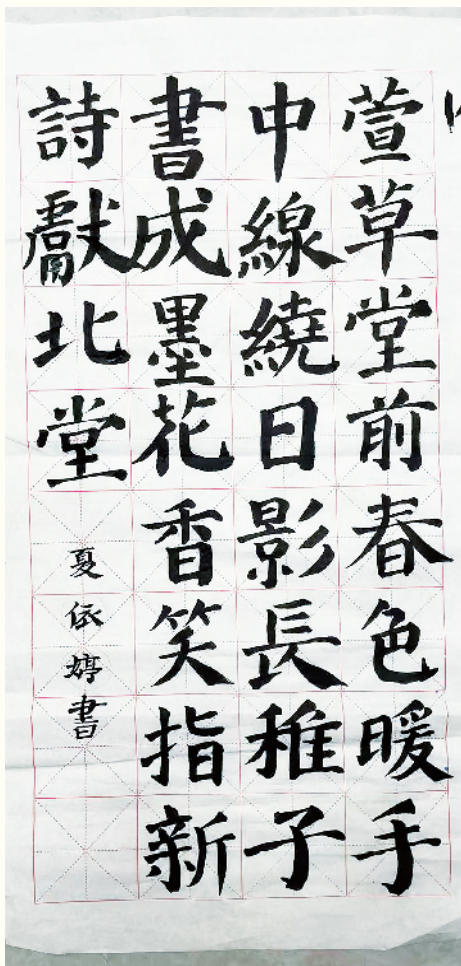 萱草堂前春色暖手
中線繞日影長稚子
書成墨花香笑指新
詩獻北堂
夏依婷書